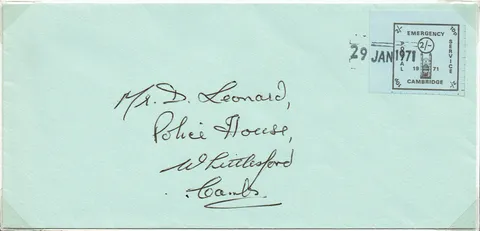 EMERGENCY
POSTAL
2/-
SERVICE
29 JAN 1971
1971
CAMBRIDGE
Mr. D. Leonard,
Police House,
Whittlesford
Cambs.